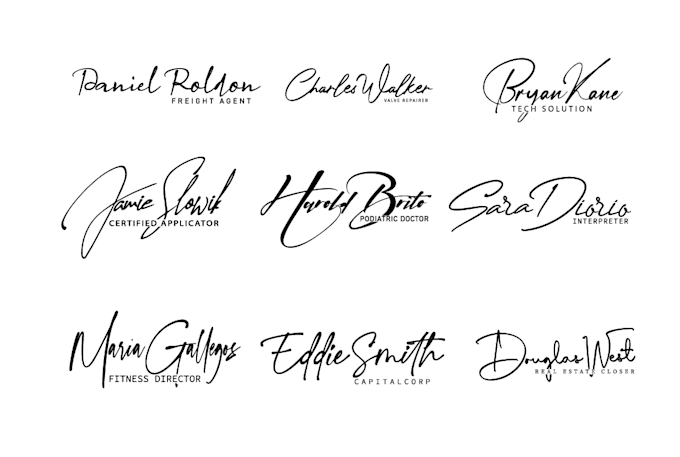 Daniel Roldon
FREIGHT AGENT
Charles Walker
VALVE REPAIRER
Bryan Kane
TECH SOLUTION
Jamie Slowik
CERTIFIED APPLICATOR
Harold Brito
PODIATRIC DOCTOR
Sara Diorio
INTERPRETER
Maria Gallegos
FITNESS DIRECTOR
Eddie Smith
CAPITALCORP
Douglas West
REAL ESTATE CLOSER